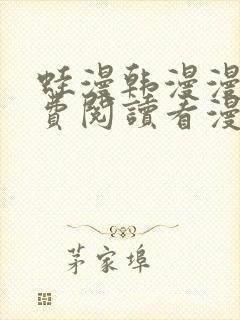 蛙漫韩漫漫
费閱讀看漫
茅家埠